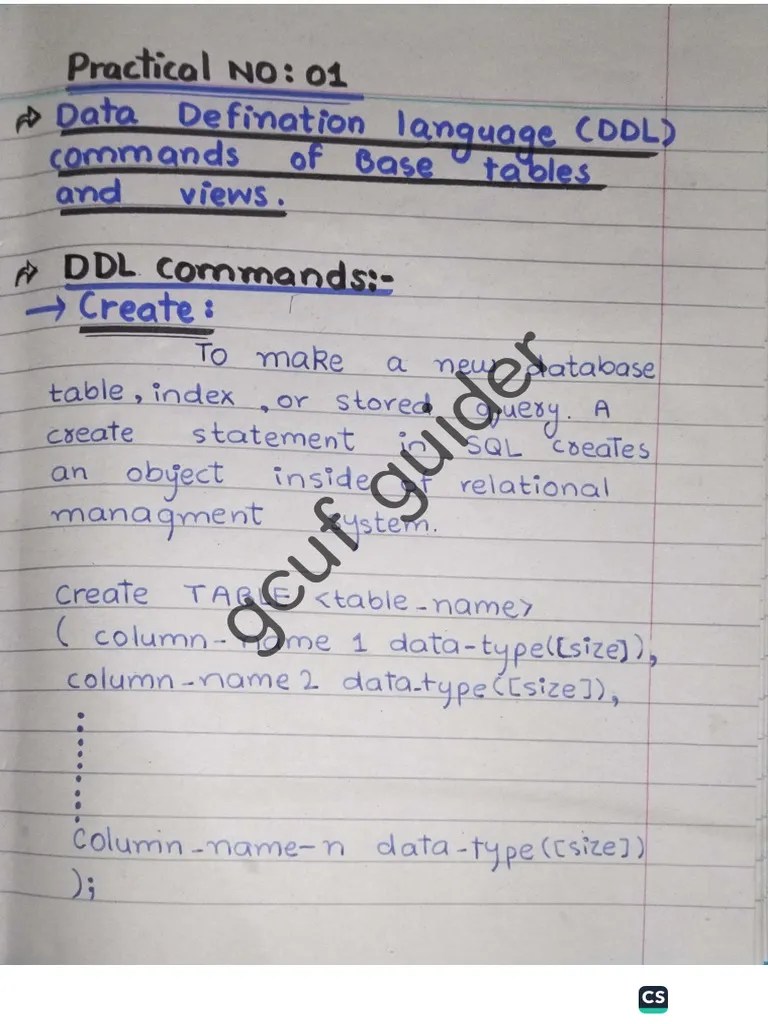 Practical NO: 01
⇒ Data Defination language (DDL)
commands of Base tables
and views.
⇒ DDL commands:-
→ Create:
To make a new database
table, index, or stored query. A
create statement in SQL creates
an object inside of relational
managment system.
Create TABLE <table_name>
( column-name 1 data-type([size]),
column-name 2 data-type([size]),
column-name-n data-type([size])
);
gcuf guider
CS